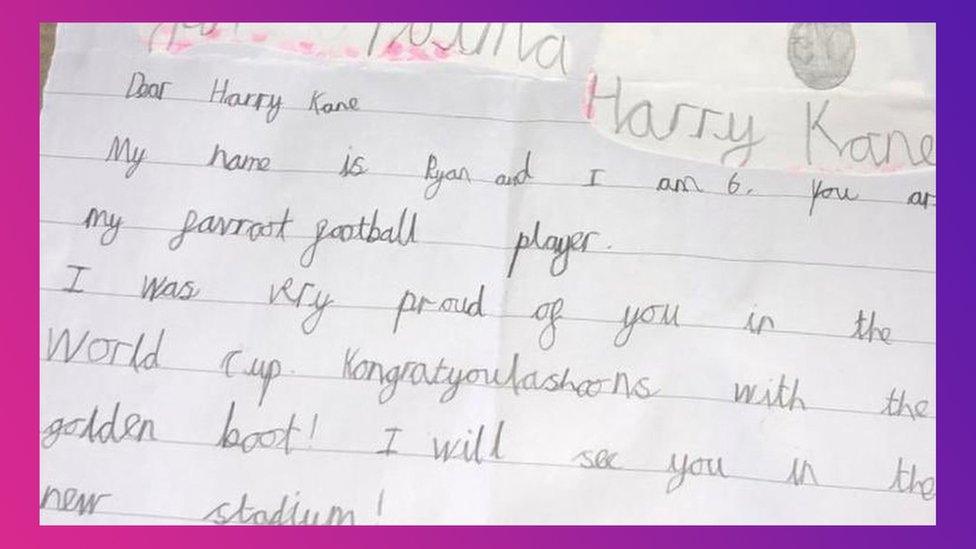 Harry Kane
Dear Harry Kane
My name is Ryan and I am 6. You ar
my favroot football player.
I was very proud of you in the
World Cup. Kongratyoulashoons with the
golden boot! I will see you in the
new stadium!